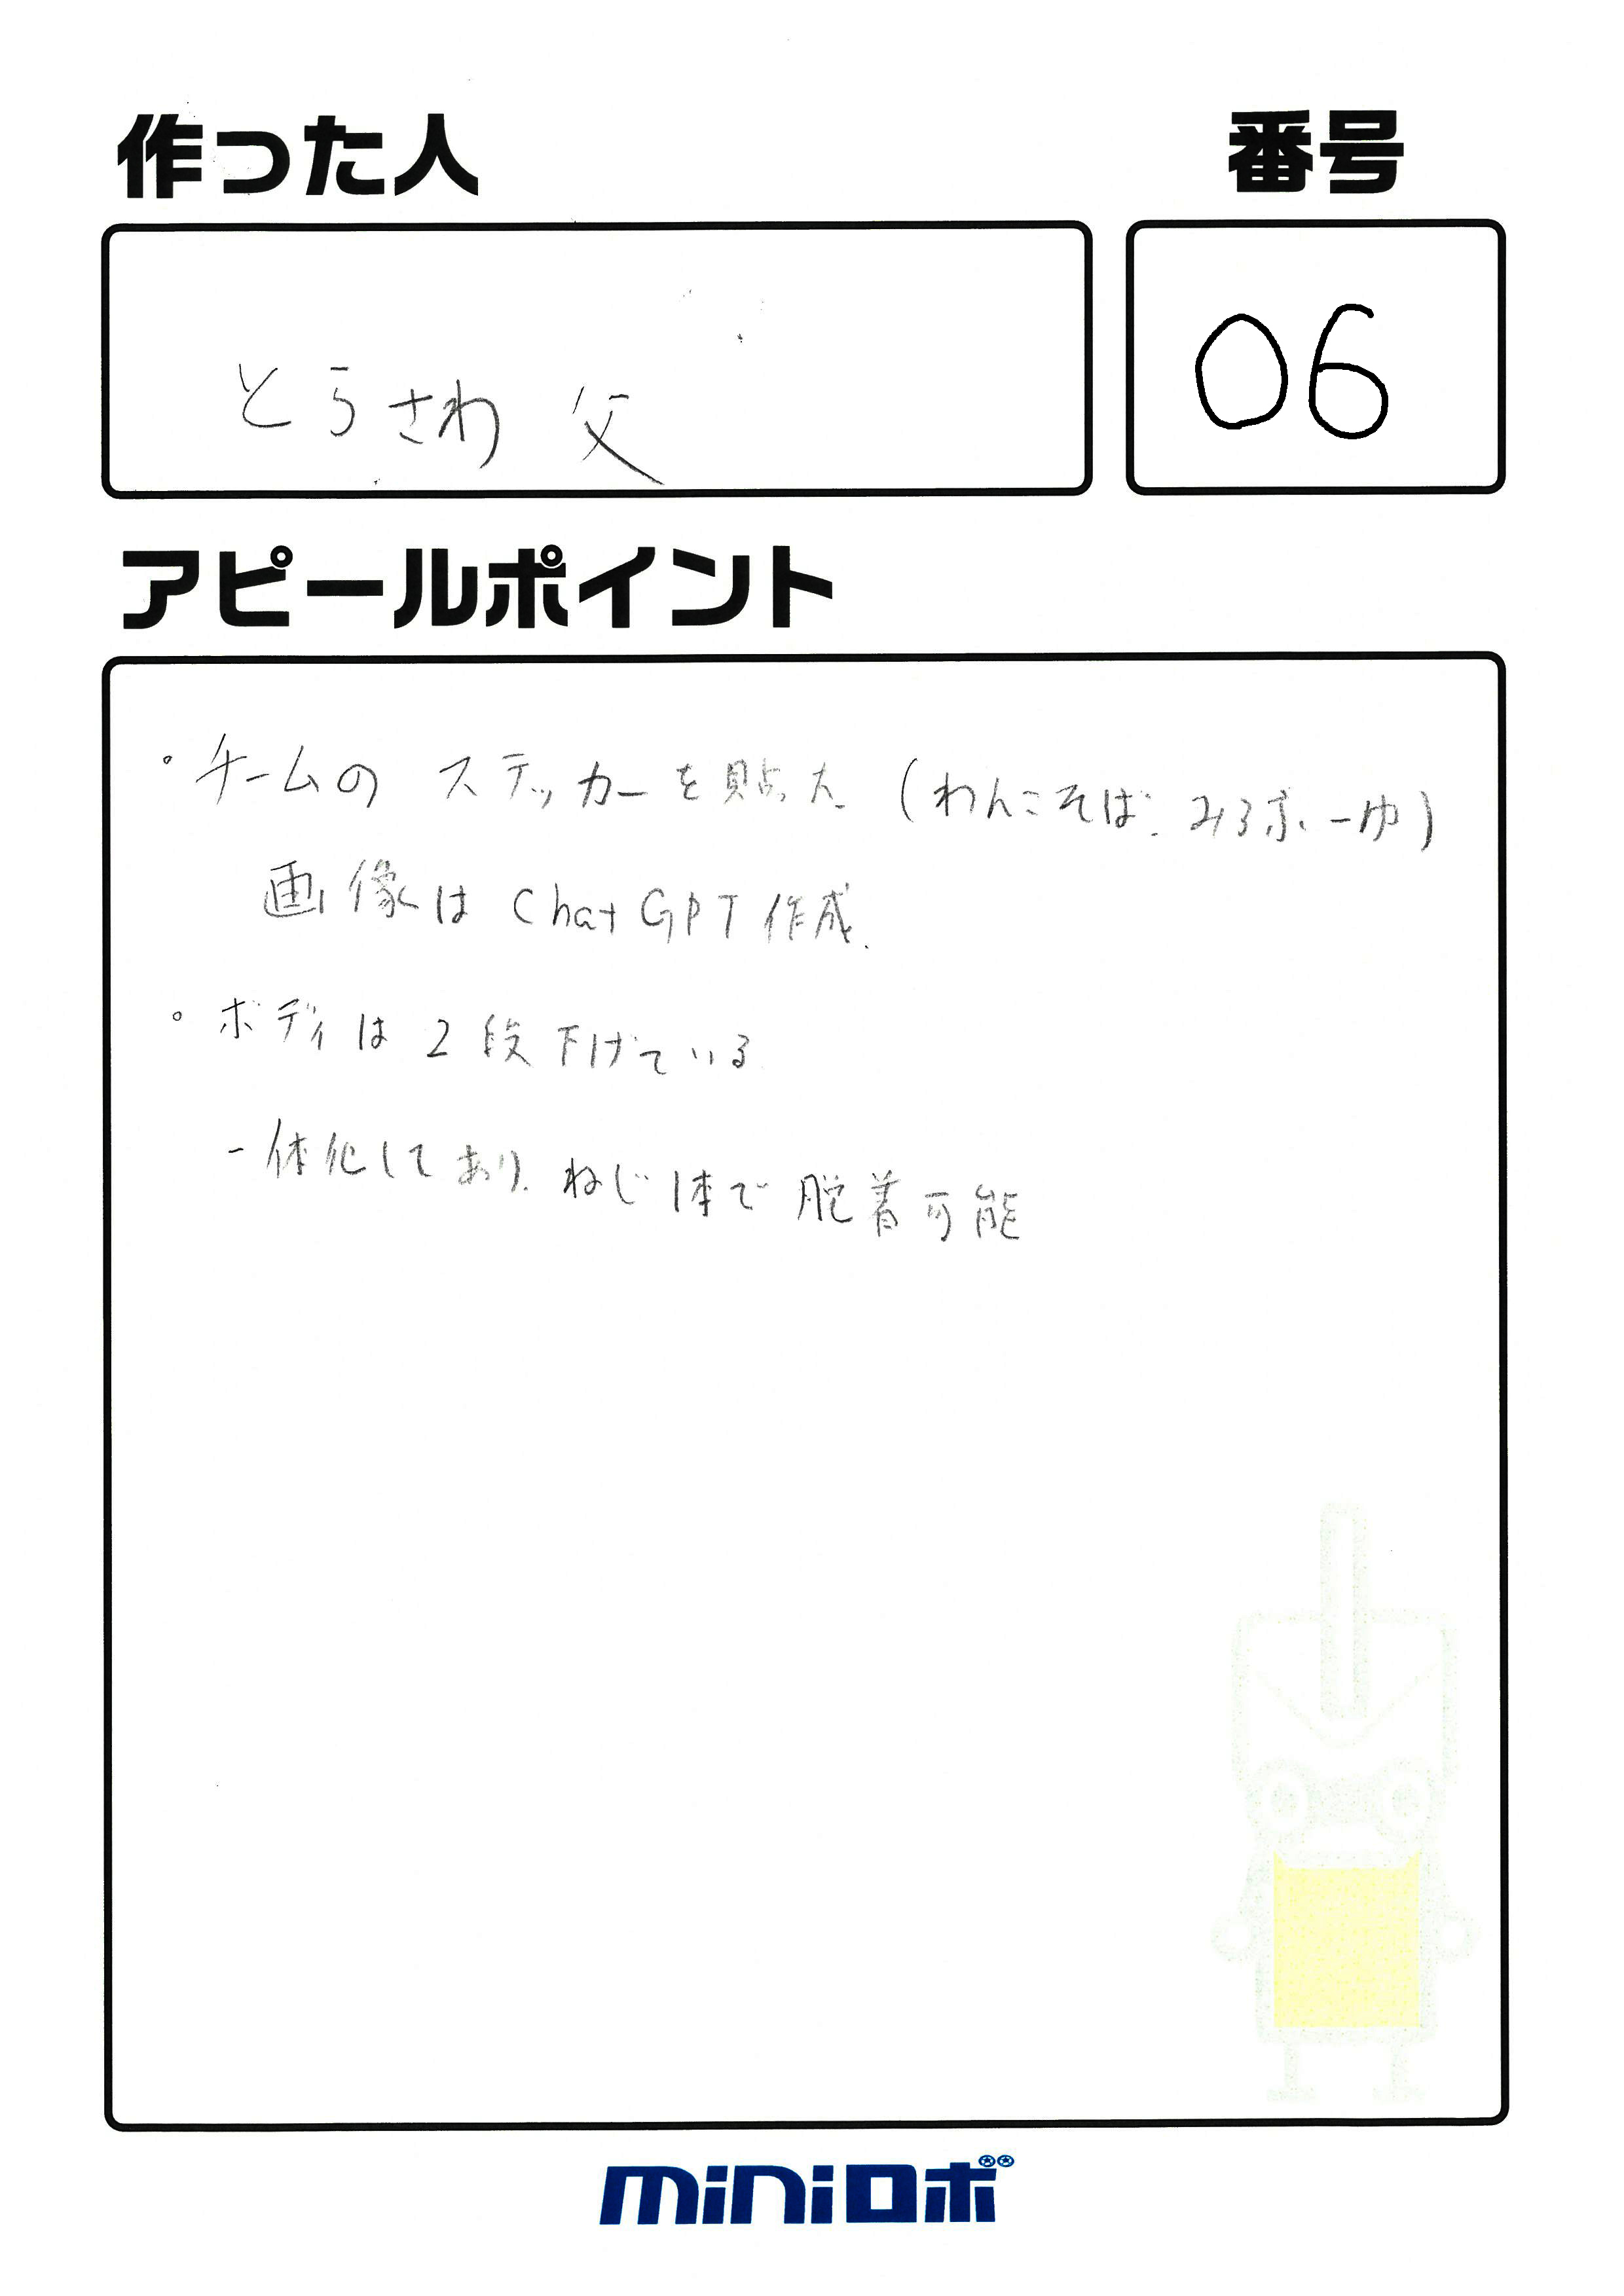 作った人
番号
とらさわ 父
06
アピールポイント
・チームの ステッカーを貼った (わんこそば、みるぶーゆ)
画像は ChatGPT作成.
・ボディは 2段下げている
一体化してあり、ねじ1本で脱着可能
miniロボ